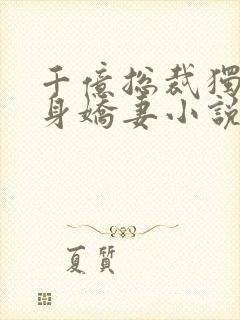 千億總裁獨
身嬌妻小說
夏質